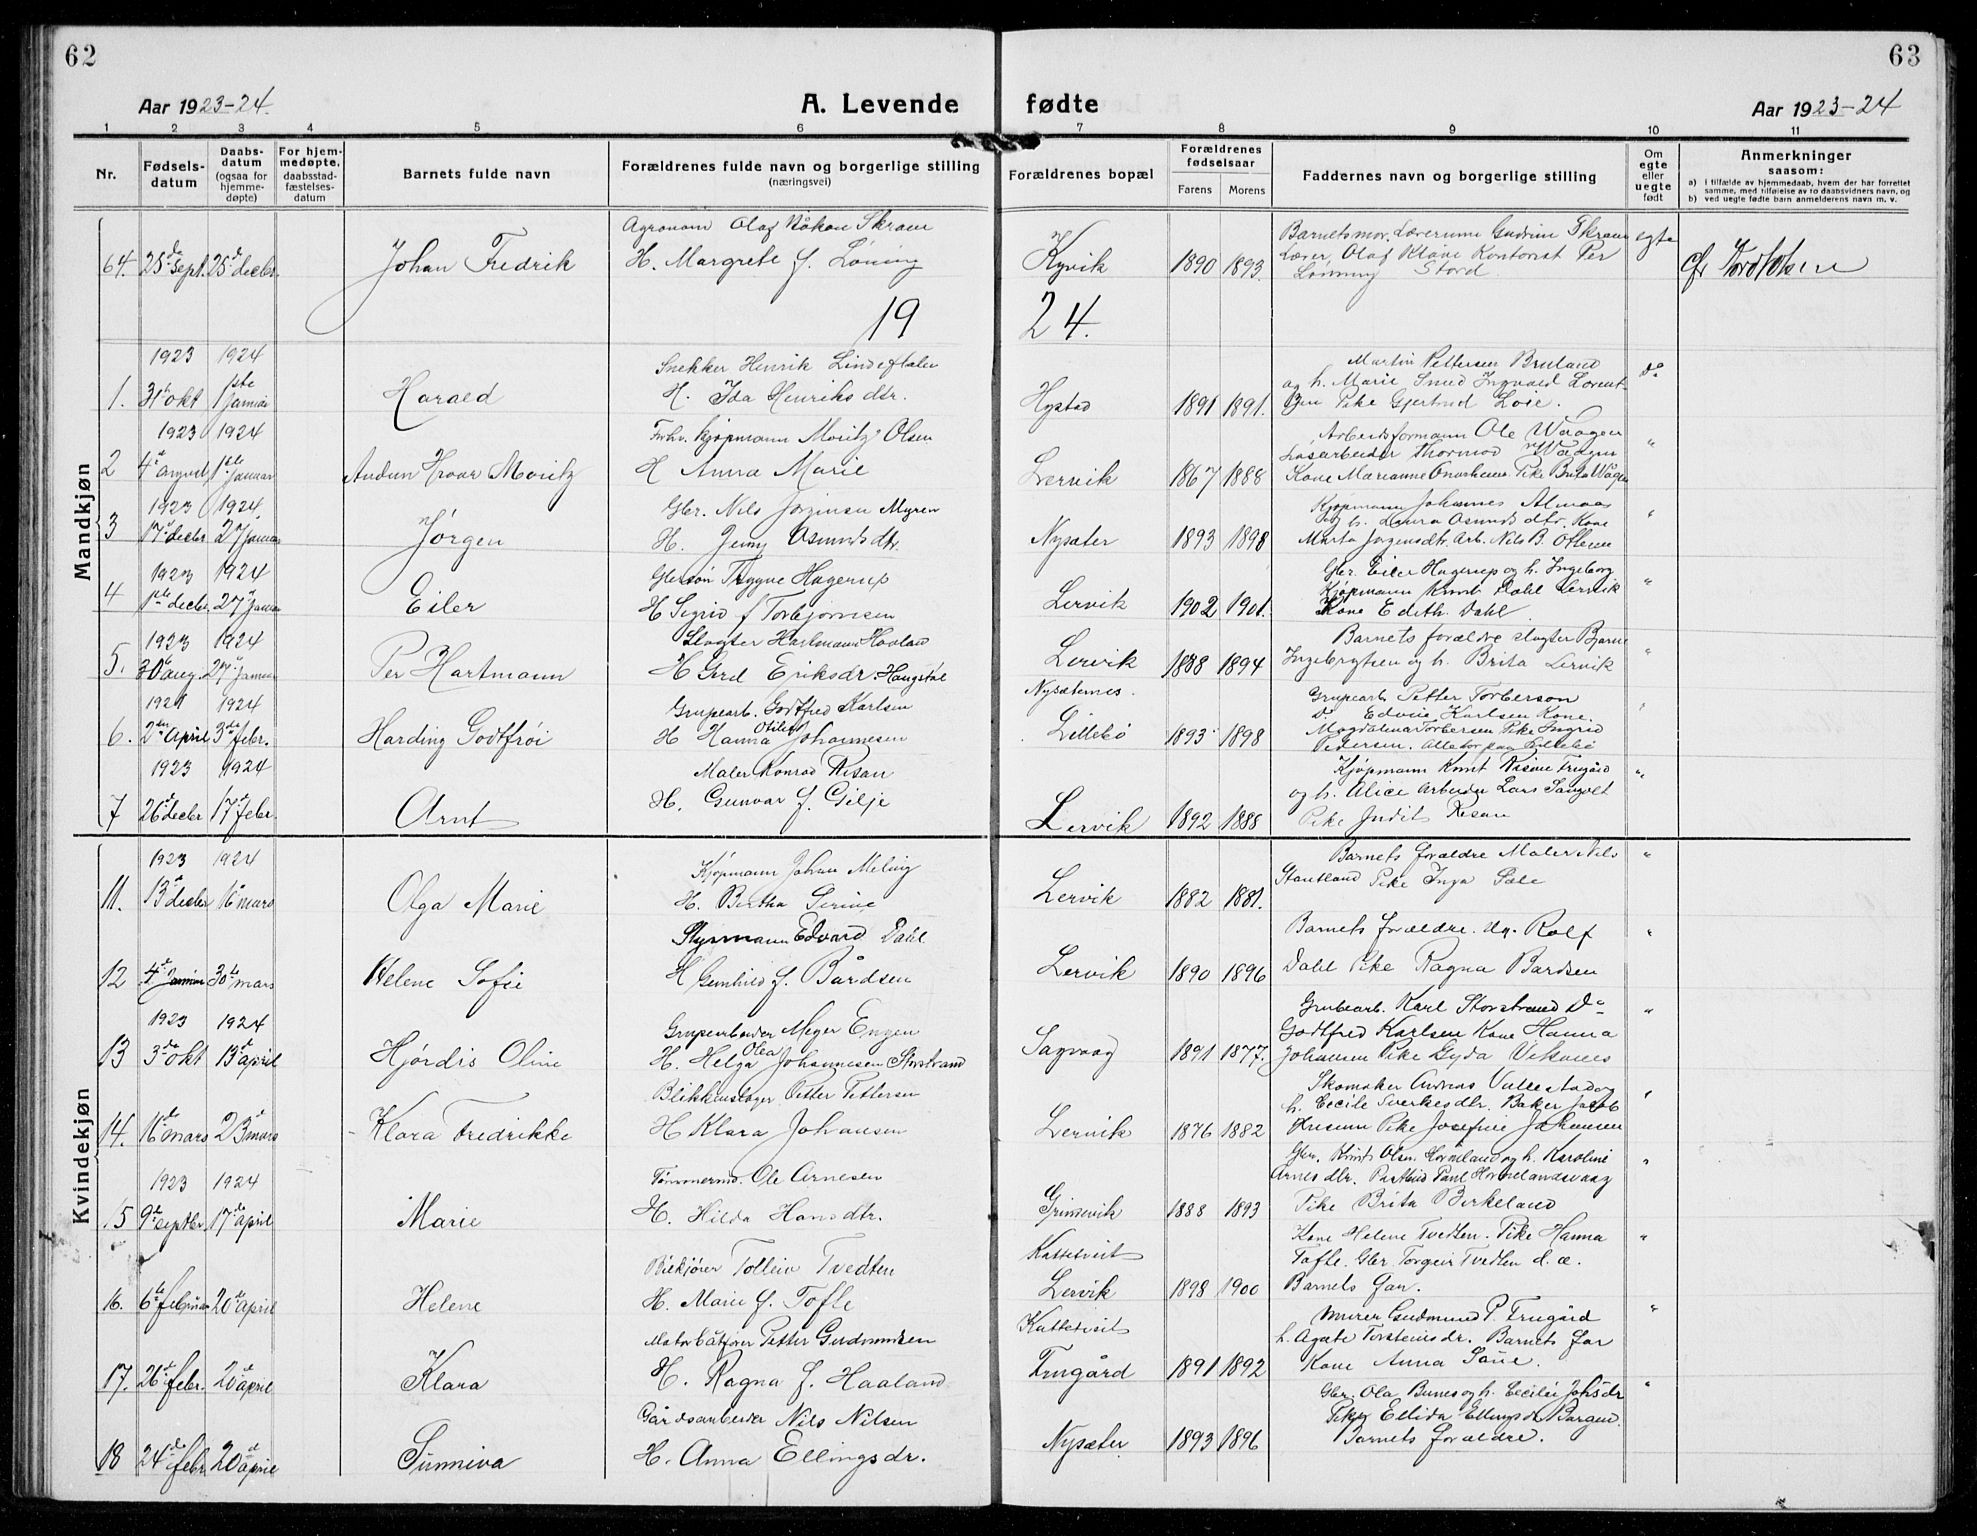 62
63
Aar 1923-24.
A. Levende fødte
Aar 1923-24
1 2 3 4 5 6 7 8 9 10 11
Nr.
Fødsels-
datum
Daabs-
datum
(ogsaa for
hjemme-
døpte)
For hjem-
medøpte,
daabsstad-
fæstelses-
datum
Barnets fulde navn
Forældrenes fulde navn og borgerlige stilling
(næringsvei)
Forældrenes bopæl
Forældrenes
fødselsaar
Farens Morens
Faddernes navn og borgerlige stilling
Om
egte
eller
uegte
født
Anmerkninger
saasom:
a) i tilfælde av hjemmedaab, hvem der har forrettet
samme, med tilføielse av to daabsvidners navn, og
b) ved uegte fødte barn anmelderens navn m. v.
Mandkjøn
Agronom Olaf Håkon Skram Barnetsmor. Lærerinne Gudrun Skram egte
64. 25de Sept. 25de decbr. Johan Fredrik H. Margrete f. Löning Kyvik 1890 1893. Lærer Olaf Klove Kontorist Per
Lönning Stord
19 24.
1923 1924 Snekker Henrik Martin Pettersen Bruland do
1. 31te okt 1ste Januar Harald H. Ida Henriksdtr. Hystad 1891 1891. og h. Marie Smed Ingvald Lorent-
zen Pike Gjertrud Loie.
1923 1924 Forhv. kjøpmann Moritz Olsen Arbeidsformann Ole Waagen "
2 4de 1ste Januar Audun Hroar Moritz H Anna Marie Lervik 1867 1888 Løsarbeider Thormod Waagen
Kone Marianne Pike Brita Wågen
1923 1924. Gbr. Nils Jørginsen Myren Kjøpmann Johannes Almaas "
3 17de decbr 27 Januar Jørgen H. Jenny Osmundsdtr. Nysæter 1893 1898 og h. Laura Osmundsdtr. Kone
Marta Jørgensdtr. Arb. Nils B. Ottesen
1923 1924 Gbrsøn Trygve Hagerup Gbr. Eiler Hagerup og h. Ingeborg "
4 1ste decbr. 27 Januar Eiler H Sigrid f Torbjørnsen Lervik 1902 1901. Kjøpmann Knut Dahl Lervik
Kone Edith Dahl
1923 1924 Slagter Hartmann Hovland Barnets forældre slagter Bjarne "
5. 30 aug. 27 Januar Per Hartmann H Gerd Eriksdr. Haugstøl Lervik 1888 1894 Ingebrigtsen og h. Brita Lervik
1921 1924 Grupearb. Godtfred Karlsen Nysæternes. Grupearb. Petter Torberson
6. 2den April 3die febr. Harding Godtfrøi H Hanna Otilie Johannesen Litlebø 1893 1898 Do Edvin Karlsen Kone.
Magdalena Torbersen Pike Ingrid
Pedersen. Alle for paa Litlebø
1923 1924 Maler Konrad Risan Kjøpmann Knut Risan Frugård "
7 26de decbr 17de febr. Arnt H. Gunvar f. Gilje Lervik 1892 1888 og h. Alice Arbeider Lars Sangolt
Pike Judit Risan
Kvindekjøn
1923 1924 Kjøpmann Johan Meling Barnets forældre Maler Nils "
11. 13de decbr 16de mars Olga Marie H. Bertha Serine Lervik 1882 1881. Stautland Pike Inga Sæle
Styrmann Edvard Dahl Barnets forældre. Ug. Rolf "
12 4de Januar 30te mars Helene Sofie H Gunhild f. Bårdsen Lervik 1890 1896 Dahl Pike Ragna Bardsen
1923 1924 Grupearbeider Meyer Engen Grubearb. Karl Storstrand Do "
13 3de okt 13de april Hjørdis Oline H. Helga Olea Johannesen Storstrand Sagvaag 1891 1877. Godtfred Karlsen Kone Hanna
Johansen Pike Gyda Veknes
Blikkenslager Petter Pettersen Skomaker Andreas Vallestad og "
14. 16de mars 23 mars Klara Fredrikke H Klara Johansen Lervik 1876 1882 h. Cecile Sverkesdtr. Baker Jacob
Husum Pike Josefine Johansen
1923 1924 Tømmermd. Ole Arnesen Gbr. Knut Olsen Hovland og h. Karoline "
15 9de septbr. 17de april Marie H. Hilda Hansdtr. Grimsvik 1888 1893 Arnesdtr. Postbud Paul
Pike Brita Birkeland
Bilkjører Tolleiv Tvedten Kattetveit Kone Helene Tvedten. Pike Hanna "
16. 6te februar 20de april Helene H. Marie f. Tofte Lervik 1898 1900 Tofte. Gbr Torgeir Tvedten d. æ.
Barnets far.
Motorbåtfører Petter Gudmundsen Kattetveit Murer Gudmund P. Frugård "
17. 26de febr. 20de april Klara H. Ragna f. Haaland Frugård 1891 1892 h. Agate Torsteinsdr. Barnets far
Kone Anna
Gårdsarbeider Nils Nilsen Gbr. Ola Bunes og h. Cecilie "
18 24de febr 20de april Sunniva H. Anna Ellingsdr. Nysæter 1893 1896 Pike Ellida Ellingsdr
Barnets forældre.